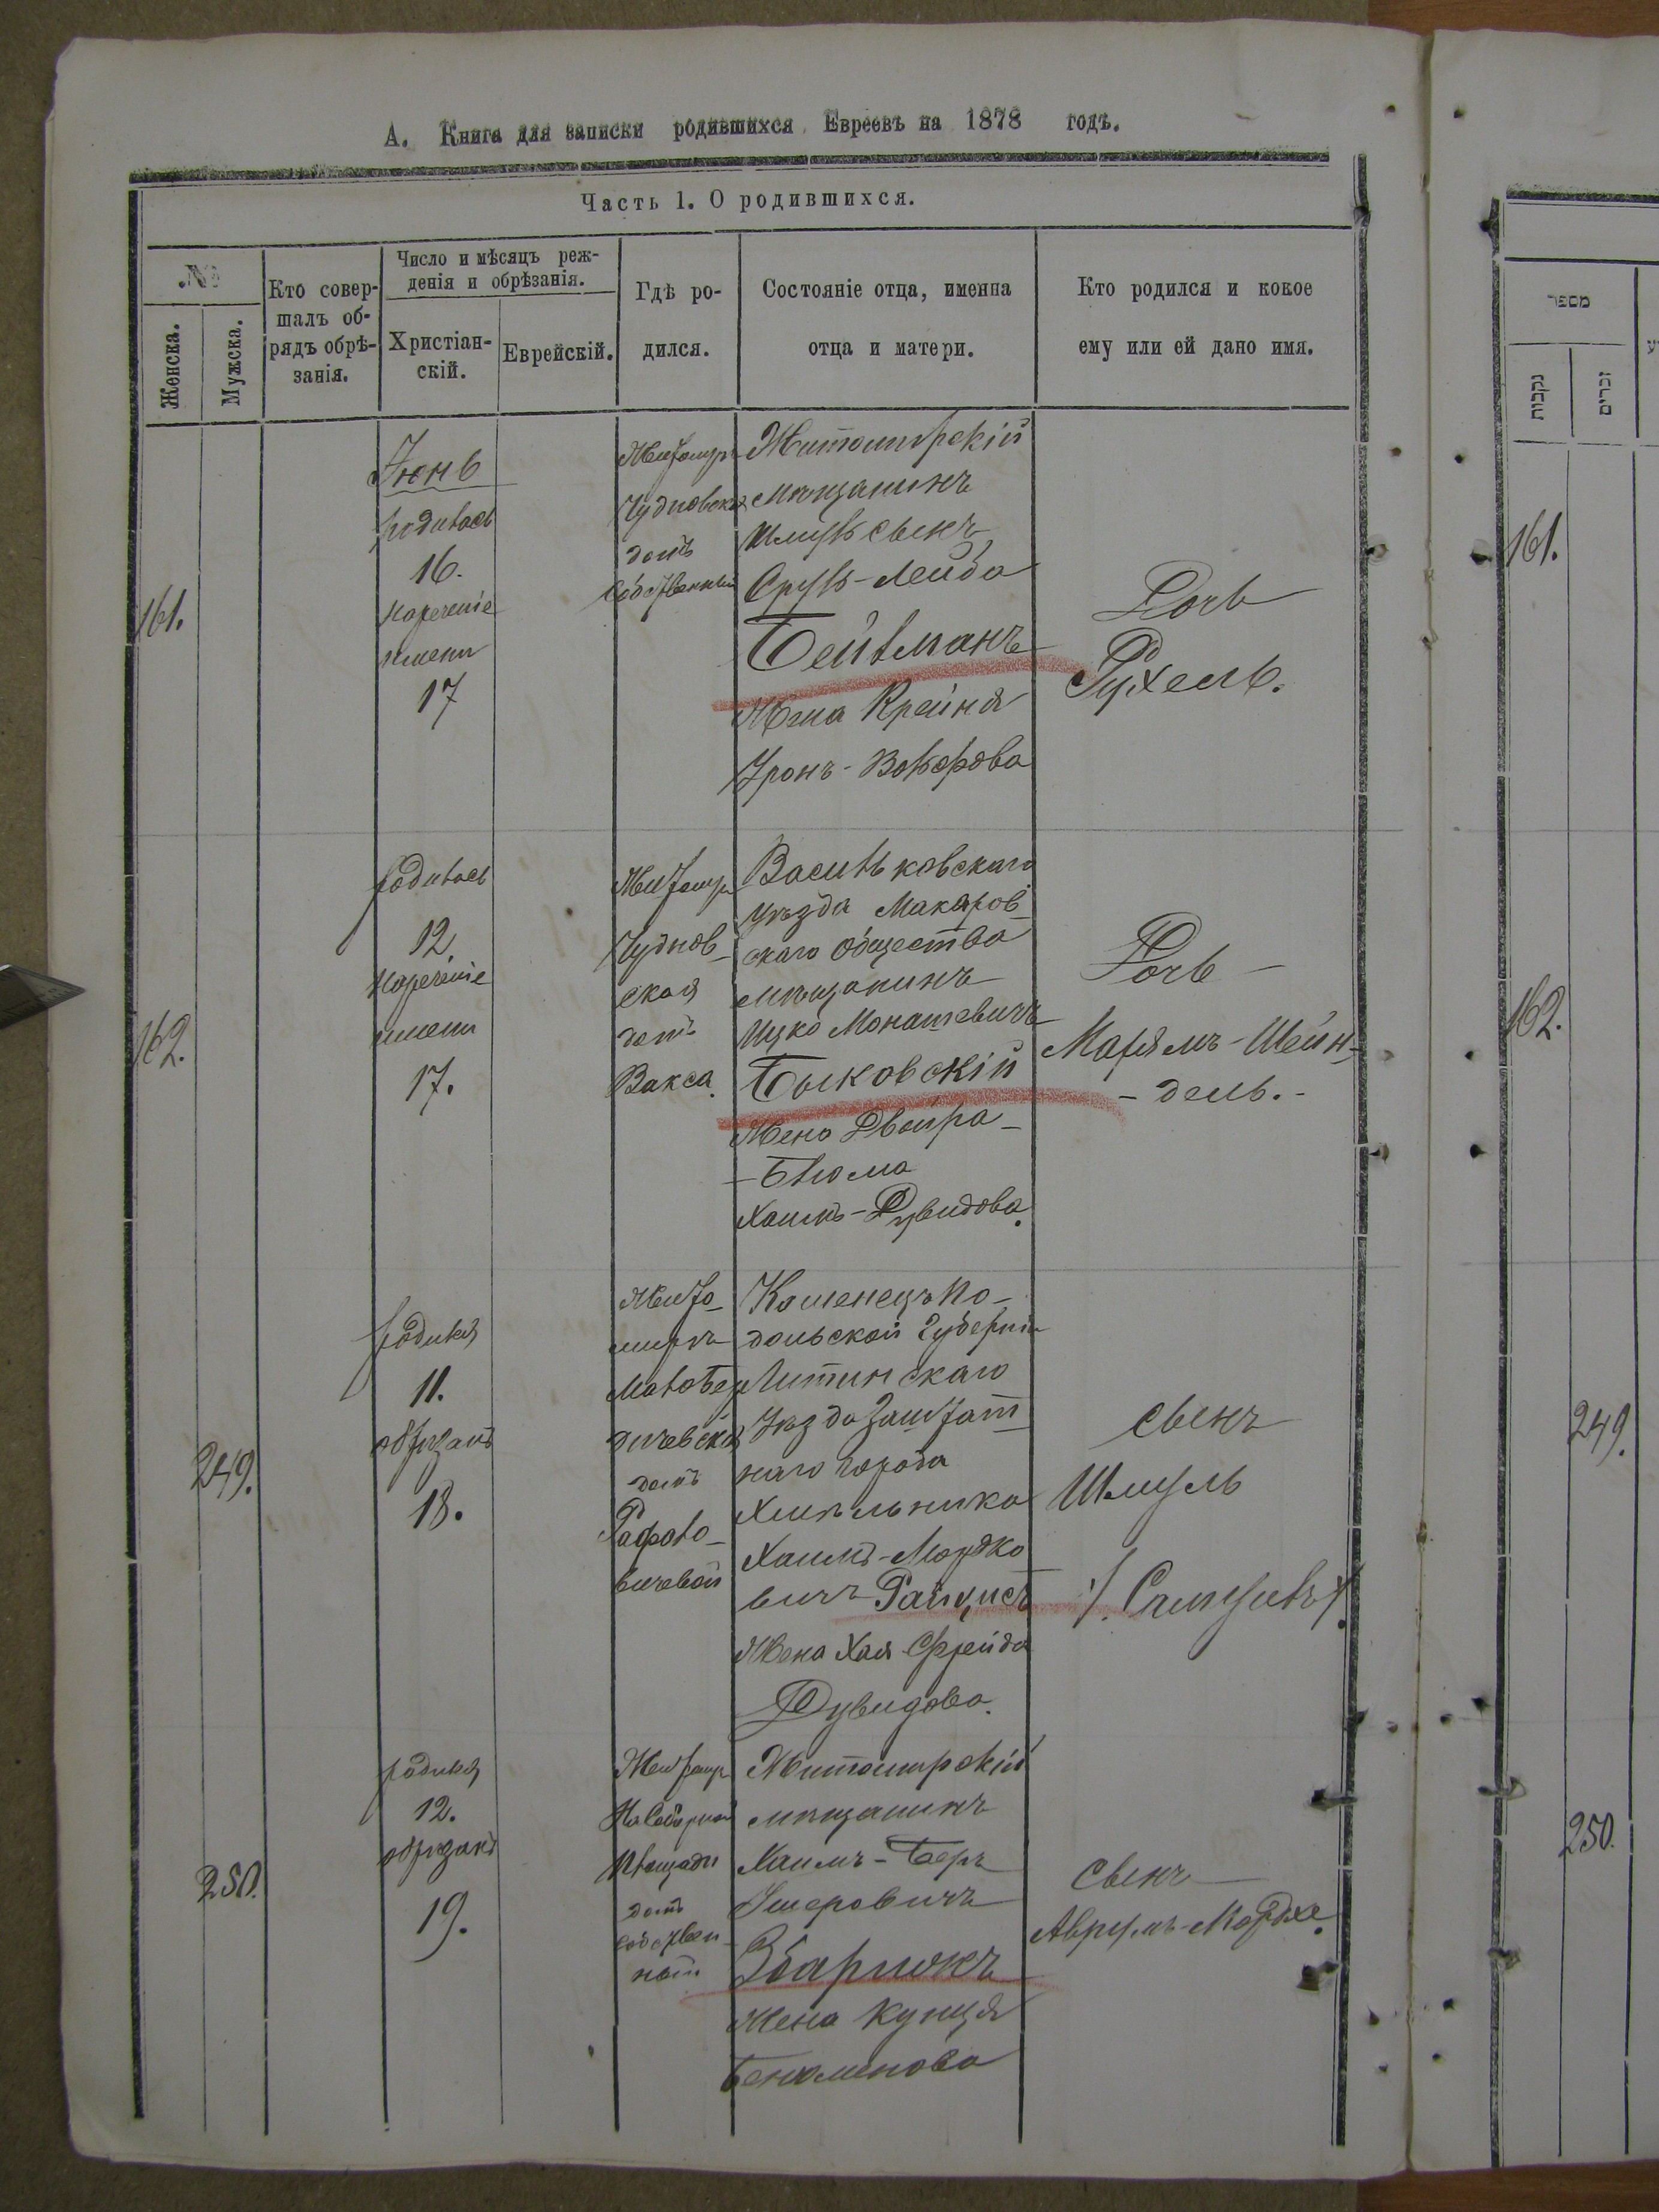 А. Книга для записки родившихся Евреевъ на 1878 годъ.
Часть 1. О родившихся.
№
Женска.
Мужска.
Кто совер-
шалъ об-
рядъ обрѣ-
занія.
Число и мѣсяцъ реж-
денія и обрѣзанія.
Христіан-
скій.
Еврейскій.
Гдѣ ро-
дился.
Состояніе отца, именна
отца и матери.
Кто родился и кокое
ему или ей дано имя.
161.
Іюнь
родилась
16.
нареченіе
имени
17
Житомиръ
Чудновская
домъ
собственный
Житомирскій
мѣщанинъ
Шмуль сынъ
Сруль-Лейба
Бейлманъ
Жена Крейня
Дочь
Рухель.
162.
родилась
12.
нареченіе
имени
17.
Житомиръ
Чуднов-
ская
домъ
Вакса.
Васильковскаго
уѣзда Макаров-
скаго общества
мѣщанинъ
Ицко Монашевичъ
Быковскій
Жена Двойра-
-Блюма
Хаимъ-Дувидова.
Дочь-
Маріямъ-Шейн-
-дель.-
249.
родился
11.
обрѣзанъ
18.
Жито-
миръ
МалоБер
дичевская
домъ
Рафало-
вичевой
Каменецъ По-
дольской Губерніи
Литинскаго
Уѣзда Заштат-
наго города
Хмѣльника
Хаимъ-Мордко
вичъ Райцисъ
Жена Хая Фрейда
Дувидова.
сынъ
Шмуль
/. Самуилъ /.
250.
родился
12.
обрѣзанъ
19.
Житомиръ
На Соборной
площади
домъ
собствен-
ной
Житомирскій
мѣщанинъ
Хаимъ-Беръ
Ушеровичъ
Збарнокъ
Жена Кунця
Беньоменова
сынъ
Аврумъ-Мордхе.
מספר
נקבות
זכרים
161.
162.
249.
250.